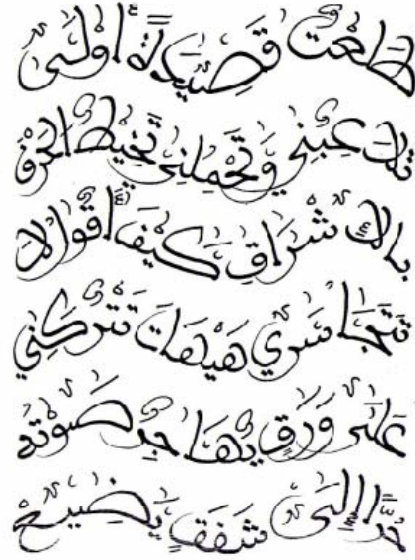 طلعت قصيدة أولى
تلاعبني وتحملني تخيط الحرف
بالاشراق كيف اقوالا
تتجاسري هيهات تتركني
على ورق بها صوته
شفق يضيع